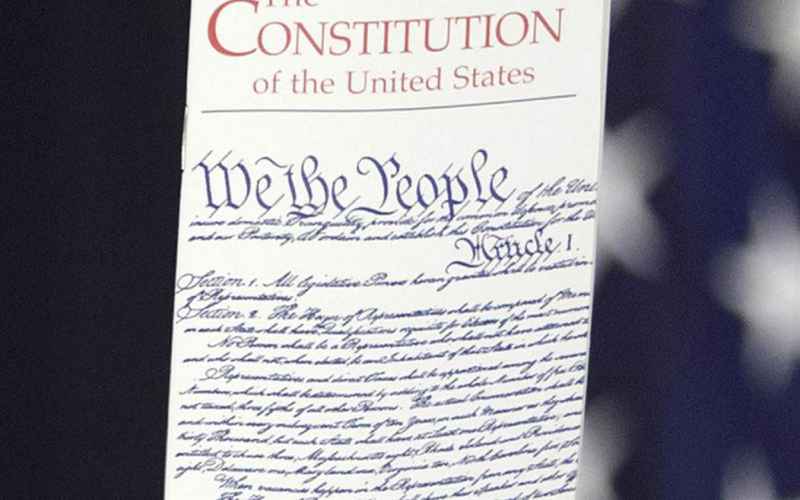 The
CONSTITUTION
of the United States
We the People of the
insure domestic Tranquility, provide for the common defence, promote
and our Posterity, do ordain and establish this Constitution for the
Article I.
Section 1. All legislative Powers herein granted shall be vested in
of Representatives.
Section 2. The House of Representatives shall be composed of
in each State shall have Qualifications requisite for Electors of the most
No Person shall be a Representative who shall not have attained
and who shall not, when elected, be an Inhabitant of that State in which
Representatives and direct Taxes shall be apportioned among the
Numbers, which shall be determined by adding to the whole Number of free
not taxed, three fifths of all other Persons. The actual Enumeration shall be
and within every subsequent Term of ten Years, in such Manner as they
thirty Thousand, but each State shall have at Least one Representative; and
entitled to chuse three, Massachusetts eight, Rhode Island and Providence
eight, Delaware one, Maryland six, Virginia ten, North Carolina five,
When vacancies happen in the Representation from any State, the